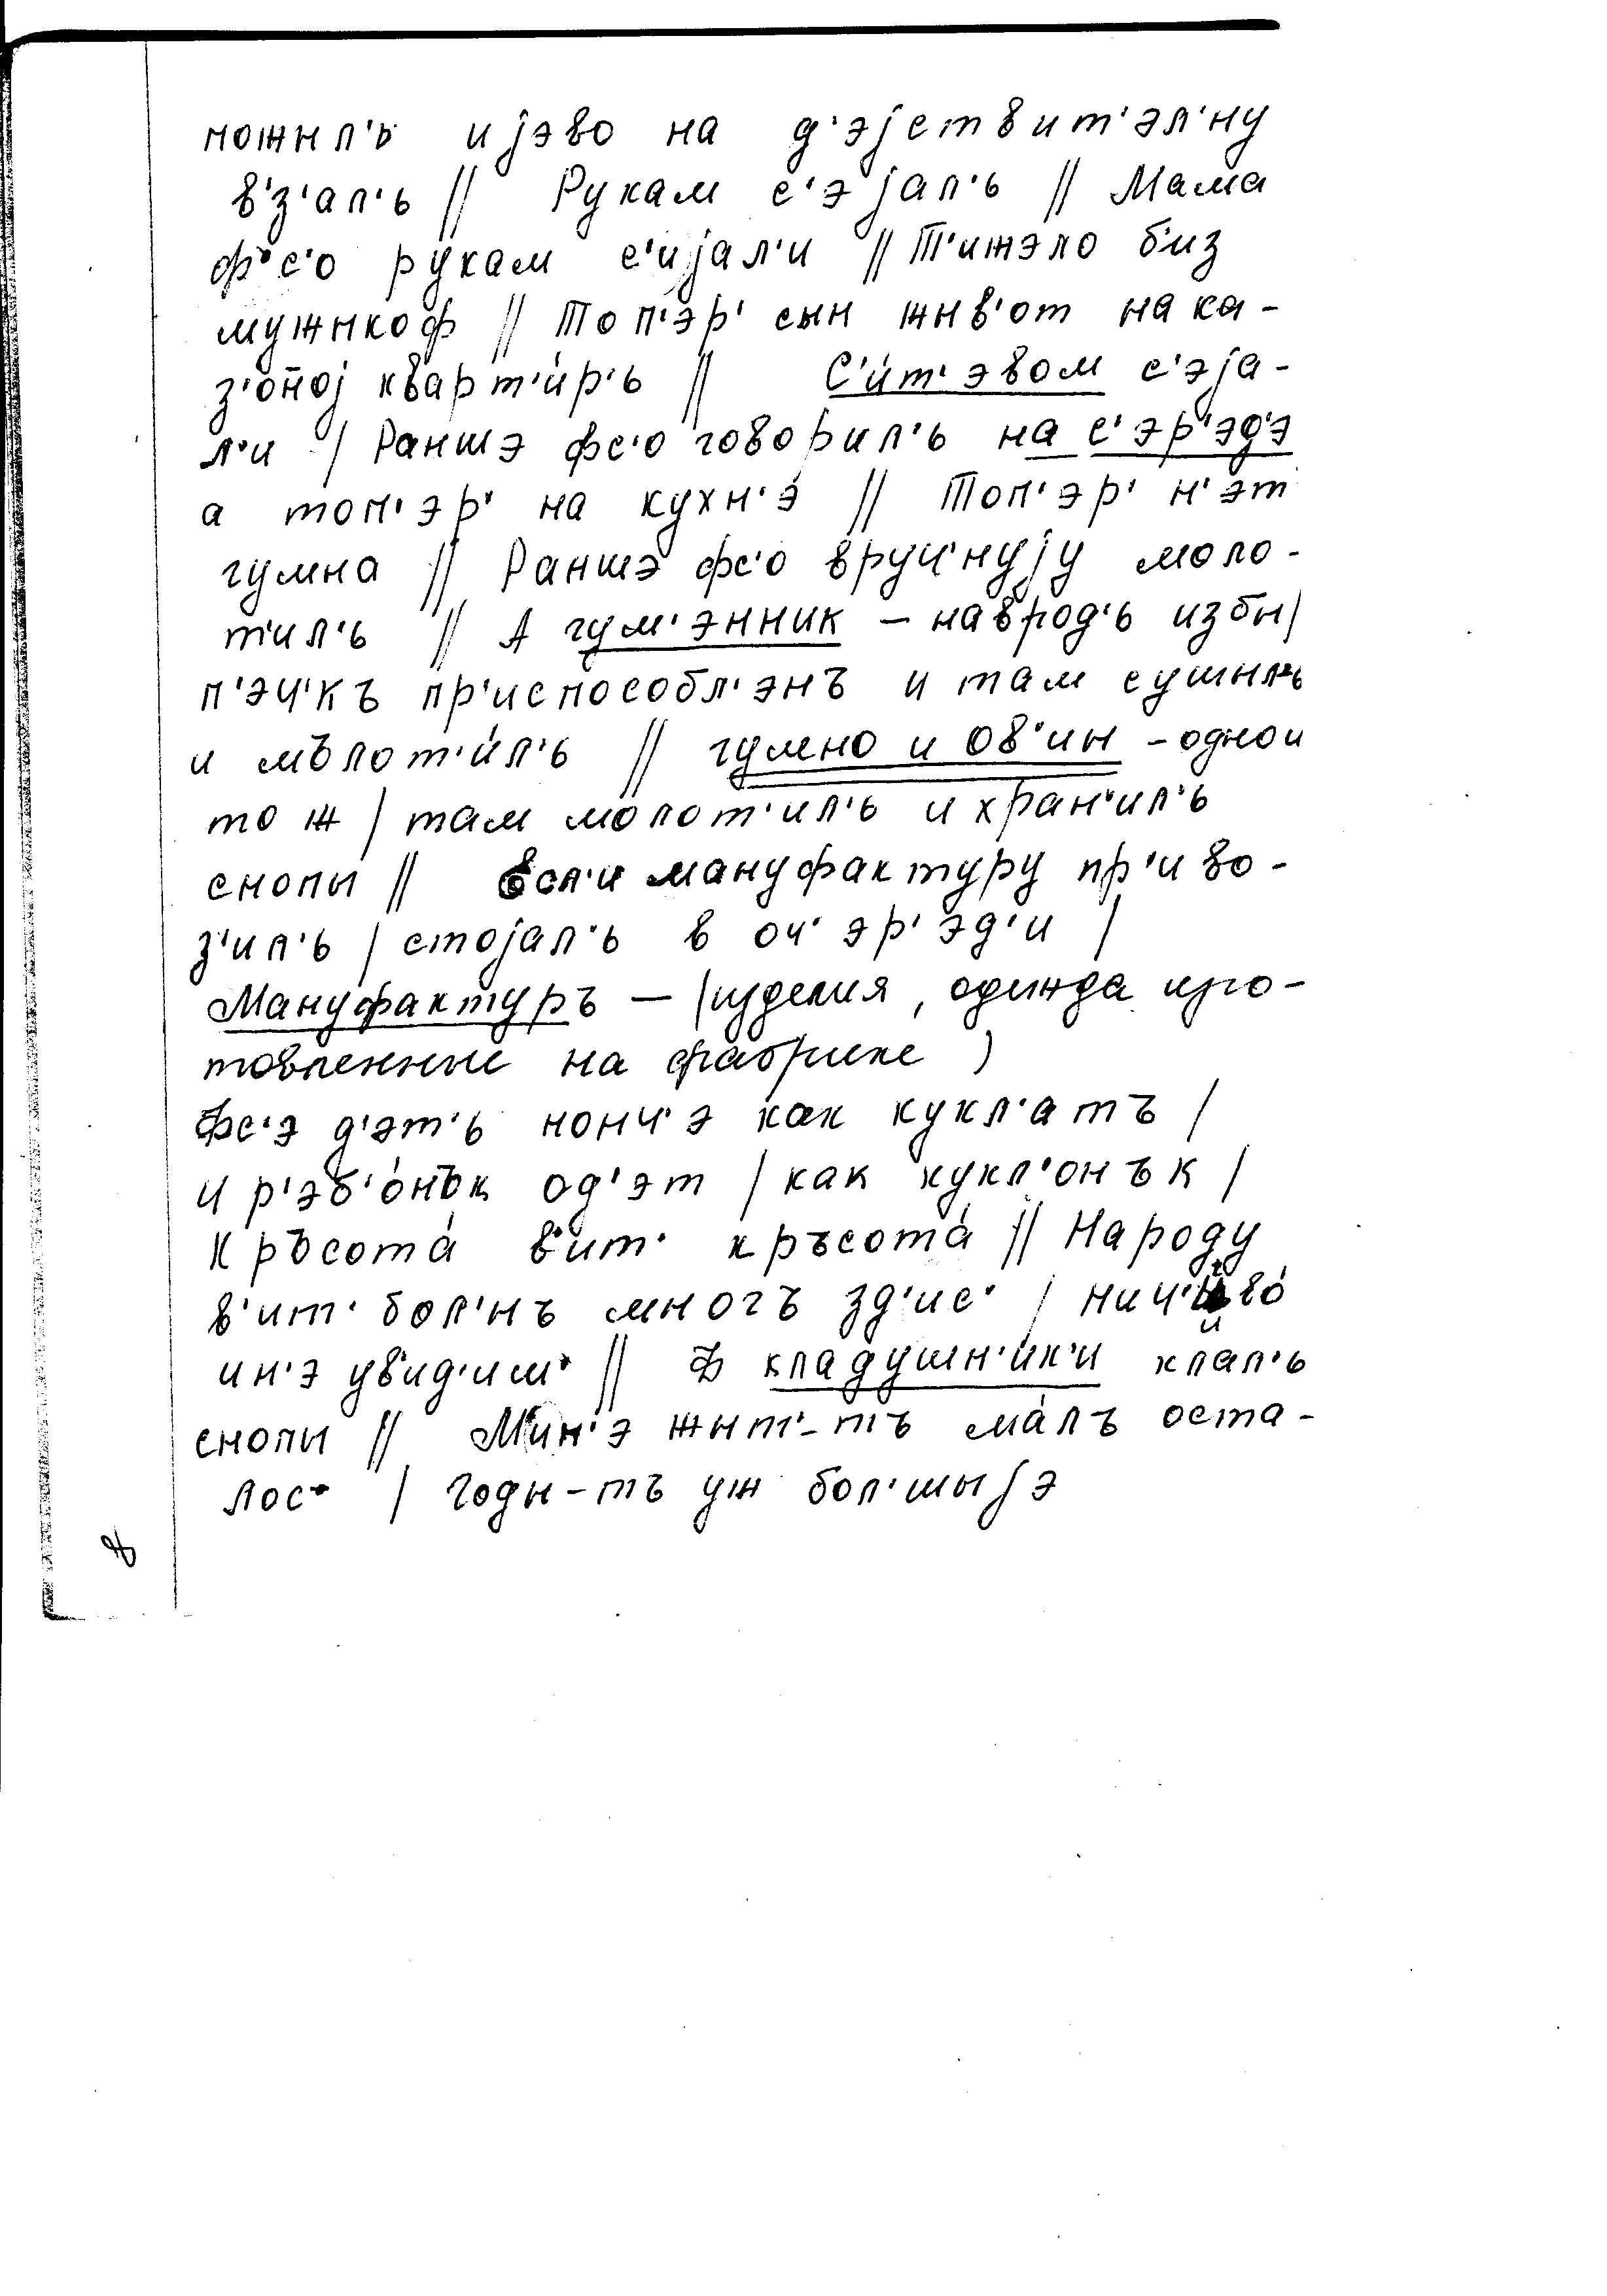 пожыл'ь и jэво на д'эjствит'эл'ну
в'з'ал'ь // Рукам с'эjал'ь // Мама
ф'с'о рукам с'иjал'и // Т'ижэло б'из
мужыкоф // Топ'эр' сын жыв'от на ка-
з'о́н̄оj кварт'и́р'ь // С'и́т'эвом с'эjа-
л'и / Раншэ фс'о говорил'ь на с'эр'эд'э
а топ'эр' на кухн'э́ // Топ'эр' н'эт
гумна // Раншэ фс'о вруч'нуjу моло-
т'ил'ь // А гум'энник – наврод'ь избы/
п'эч'къ пр'испособл'энъ и там сушыл'ь
и мълот'и́л'ь // гумно и ов'ин – одно и
то ж / там молот'ил'ь и хран'ил'ь
снопы // Если мануфактуру пр'иво-
з'ил'ь / стоjал'ь в оч'эр'эд'и /
Мануфактуръ – (изделия, одежда изго-
товленные на фабрике)
Фс'э д'эт'ь нонч'э как кукл'атъ /
и р'эб'о́нък од'эт / как кукл'онък /
Кръсота́ в'ит' кръсота́ // Народу
в'ит' бол'нъ многъ зд'ис' / нич'иво́
и н'э ув'ид'иш' // Ф кладушн'ик'и клал'ь
снопы // Мин'э жыт'-тъ ма́лъ оста-
лос' / годы-тъ уж бол'шыjэ
8